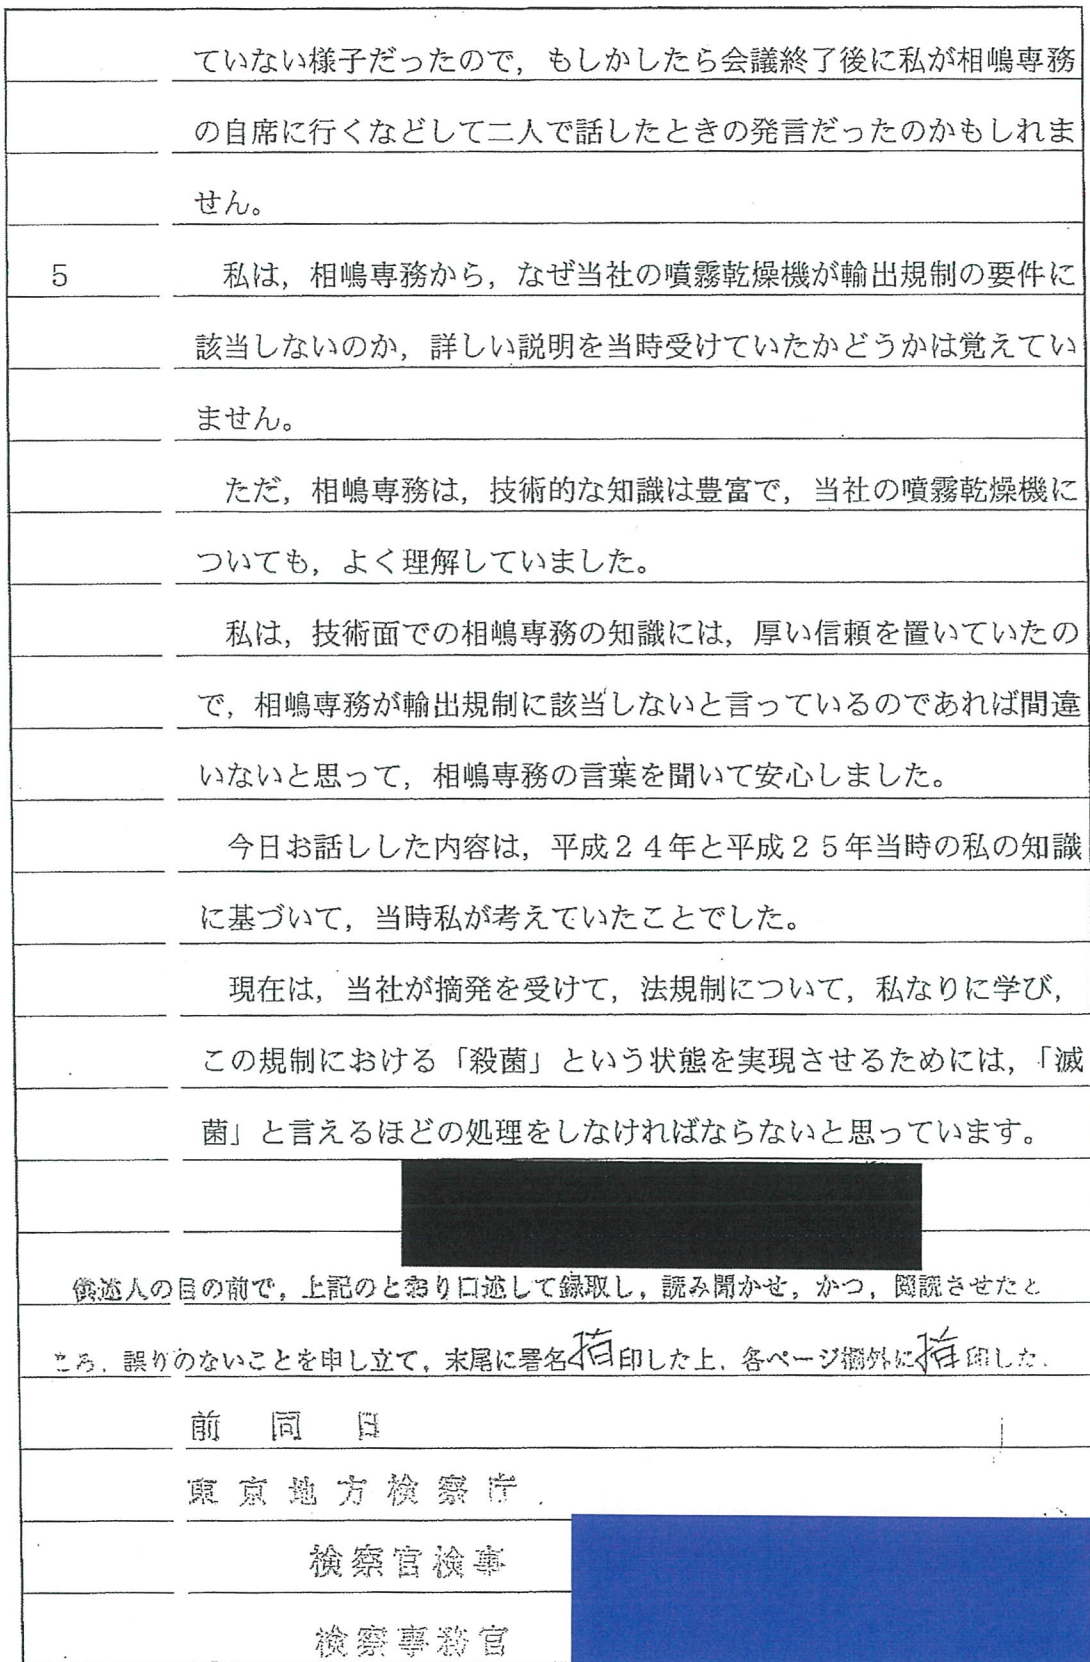 ていない様子だったので，もしかしたら会議終了後に私が相嶋専務
の自席に行くなどして二人で話したときの発言だったのかもしれま
せん。
5　私は，相嶋専務から，なぜ当社の噴霧乾燥機が輸出規制の要件に
該当しないのか，詳しい説明を当時受けていたかどうかは覚えてい
ません。
ただ，相嶋専務は，技術的な知識は豊富で，当社の噴霧乾燥機に
ついても，よく理解していました。
私は，技術面での相嶋専務の知識には，厚い信頼を置いていたの
で，相嶋専務が輸出規制に該当しないと言っているのであれば間違
いないと思って，相嶋専務の言葉を聞いて安心しました。
今日お話しした内容は，平成２４年と平成２５年当時の私の知識
に基づいて，当時私が考えていたことでした。
現在は，当社が摘発を受けて，法規制について，私なりに学び，
この規制における「殺菌」という状態を実現させるためには，「滅
菌」と言えるほどの処理をしなければならないと思っています。
供述人の目の前で，上記のとおり口述して録取し，読み聞かせ，かつ，閲読させたと
ころ，誤りのないことを申し立て，末尾に署名指印した上，各ページ欄外に指印した。
前　同　日
東京地方検察庁
検察官検事
検察事務官